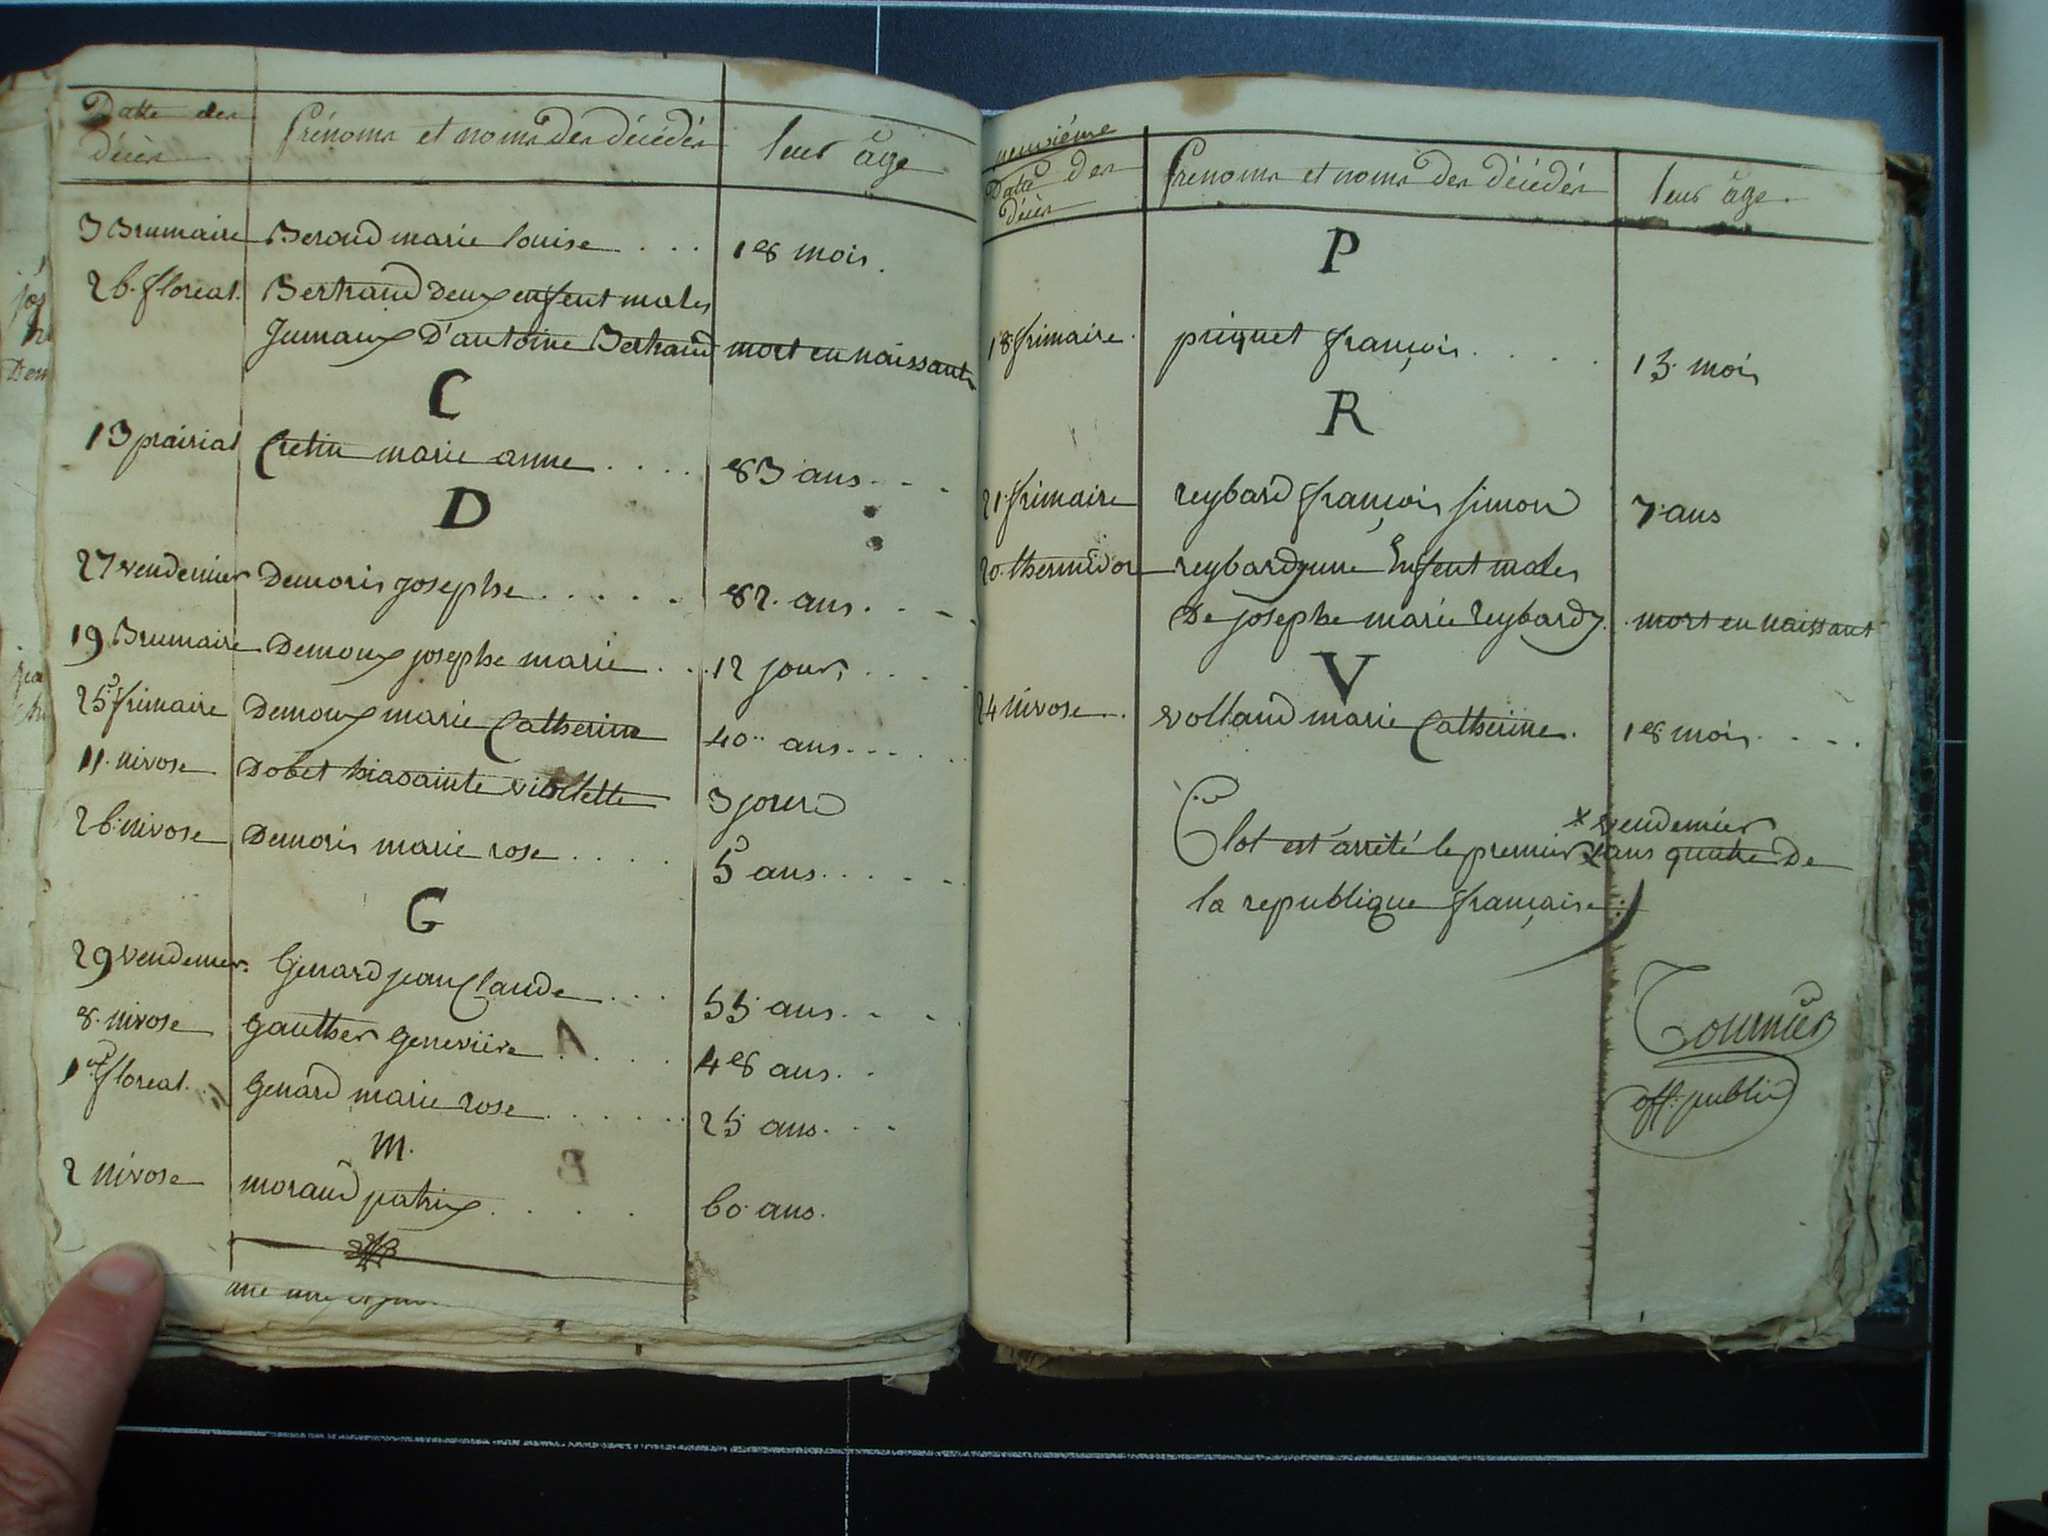 Datte des
décès
Prénoms et noms des décédés
leur âge
3 Brumaire Beroud marie louise . . . 18 mois.
26. floreal. Bertrand deux enfent males
Jumaux D'antoine Bertrand mort en naissants
C
13 prairial Cretin marie anne . . . . 83 ans . . .
D
27 vendemier Demoris josephe . . . . . 82. ans . . .
19 Brumaire Demoux josephe marie . . . 12 jours . . . .
25 frimaire Demoux marie Catherine 40 ans . . . .
11. nivose Dobet hiasainte viollette 3 jours
26. nivose Demoris marie rose . . . . 5 ans . . . . .
G
29 vendemier. Genard jean Claude . . . 55 ans . . .
8. nivose gauthier genevieve . . . . 48 ans . .
1er floreal. Genard marie rose . . . . . . 25 ans . . .
m.
2 nivose moraud patrix . . . . 60 ans.
neuvième
Datte des
décès
Prenoms et noms des décédés
leur âge.
P
18 frimaire. priquet françois . . . . 13. mois
R
21. frimaire reybard françois simon 7 ans
20. thermidor reybard, une Enfent males
De josephe marie reybard, . mort en naissant
V
24 nivose . . volland marie Catherine. 18 mois . . . .
* vendemier
Clot est arrêté le premier * ans quatre de
la republique française
Tournier
off. public